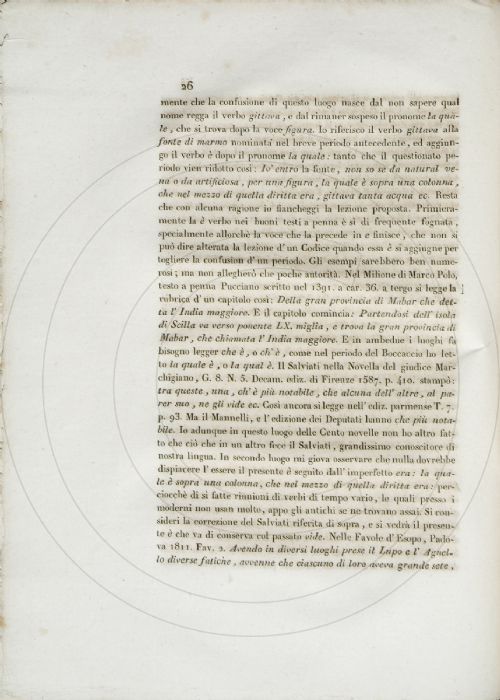 26
mente che la confusione di questo luogo nasce dal non sapere qual
nome regga il verbo gittava, e dal rimaner sospeso il pronome la qua-
le, che si trova dopo la voce figura. Io riferisco il verbo gittava alla
fonte di marmo nominata nel breve periodo antecedente, ed aggiun-
go il verbo è dopo il pronome la quale: tanto che il questionato pe-
riodo vien ridotto così: Io' entro la fonte, non so se da natural ve-
na o da artificiosa, per una figura, la quale è sopra una colonna,
che nel mezzo di quella diritta era, gittava tanta acqua ec. Resta
che con alcuna ragione io fiancheggi la lezione proposta. Primiera-
mente la è verbo nei buoni testi a penna è sì di frequente fognata,
specialmente allorchè la voce che la precede in e finisce, che non si
può dire alterata la lezione d' un Codice quando essa è si aggingne per
togliere la confusion d' un periodo. Gli esempi sarebbero ben nume-
rosi; ma non allegherò che poche autorità. Nel Milione di Marco Polo,
testo a penna Pucciano scritto nel 1391. a car. 36. a tergo si legge la
rubrica d' un capitolo così: Della gran provincia di Mabar che det-
ta l' India maggiore. E il capitolo comincia: Partendosi dell' isola
di Scilla va verso ponente LX. miglia, e trova la gran provincia di
Mabar, che chiamata l' India maggiore. E in ambedue i luoghi fa
bisogno legger che è, o ch' è, come nel periodo del Boccaccio ho let-
to la quale è, o la qual è. Il Salviati nella Novella del giudice Mar-
chigiano, G. 8. N. 5. Decam. ediz. di Firenze 1587. p. 410. stampò:
tra queste, una, ch' è più notabile, che alcuna dell' altre, al pa-
rer suo, ne gli vide ec. Così ancora si legge nell' ediz. parmense T. 7.
p. 93. Ma il Mannelli, e l' edizione dei Deputati hanno che più nota-
bile. Io adunque in questo luogo delle Cento novelle non ho altro fat-
to che ciò che in un altro fece il Salviati, grandissimo conoscitore di
nostra lingua. In secondo luogo mi giova osservare che nulla dovrebbe
dispiacere l' essere il presente è seguito dall' imperfetto era: la qua-
le è sopra una colonna, che nel mezzo di quella diritta era: per-
ciocchè di sì fatte riunioni di verbi di tempo vario, le quali presso i
moderni non usan molto, appo gli antichi se ne trovano assai. Si con-
sideri la correzione del Salviati riferita di sopra, e si vedrà il presen-
te è che va di conserva col passato vide. Nelle Favole d' Esopo, Pado-
va 1811. Fav. 2. Avendo in diversi luoghi prese il Lupo e l' Agnel-
lo diverse fatiche, avvenne che ciascuno di loro aveva grande sete,